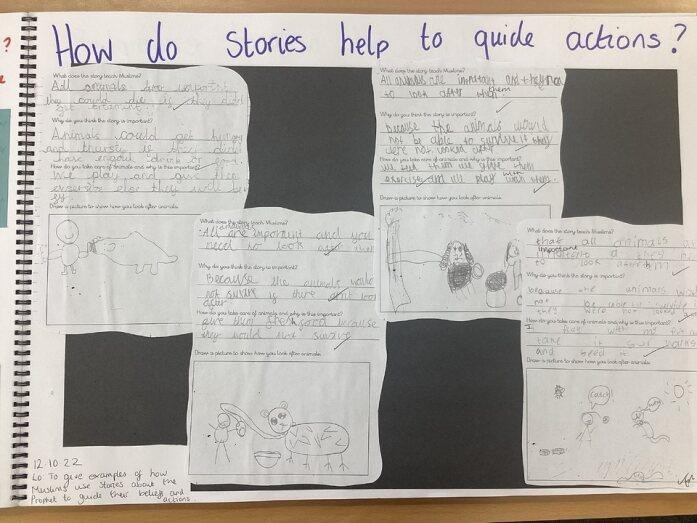 How do Stories help to guide actions?
What does the story teach Muslims?
All animals are important
they could die if they didnt
get treated.
Why do you think the story is important?
Animals could get hungry
and thirsty if they didnt
have drink or food.
How do you take care of animals and why is this important?
We play and give them
exersise else they will be
What does the story teach Muslims?
All animals are important and you
need to look after them
Why do you think the story is important?
Because the animals would
not survive is there look
after
How do you take care of animals and why is this important?
give them food because
they would not survive
Draw a picture to show how you look after animals.
What does the story teach Muslims?
All animals are and
to look after them
Why do you think the story is important?
because the animals would
not be able to survive if they
were not looked after
How do you take care of animals and why is this important?
we feed them we give them
exercise and we play with them.
Draw a picture to show how you look after animals.
What does the story teach Muslims?
that all animals
important
to look after
Why do you think the story is important?
because the animals
not be able to
they were not looked
How do you take care of animals and why is this important?
I play with
take it
and feed it
Draw a picture to show how you look after animals.
Catch!
Draw a picture to show how you look after animals.
12.10.22
Lo: To give examples of how
Muslims use stories about the
Prophet to guide their beliefs and
actions.